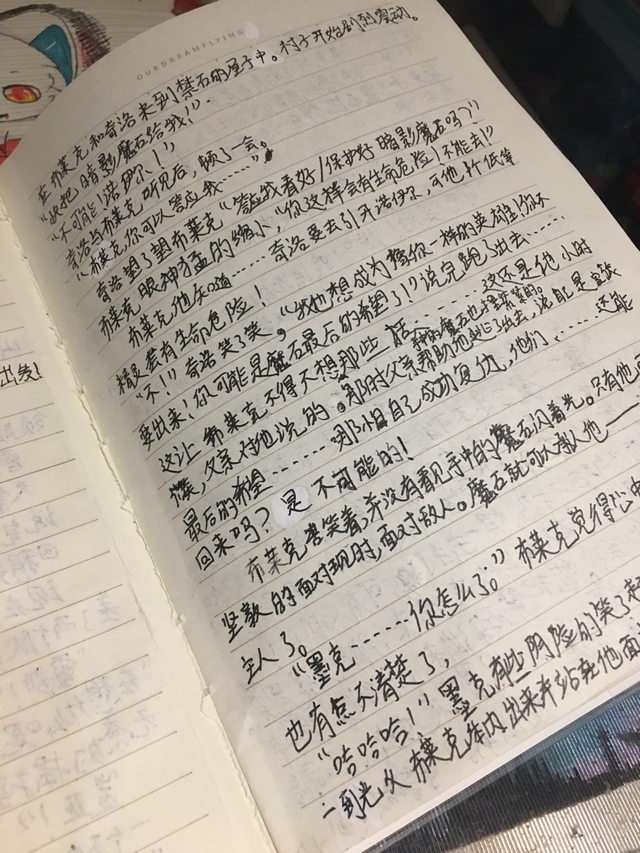 OURDREAMFLYING
在布莱克和奇洛来到禁石的屋子中。村子开始剧烈震动。
“快把暗影魔石给我！”
“不可能！诺伊尔！”
奇洛与布莱克听见后，顿了一会。
“布莱克你可以答应我……”
奇洛望了望布莱克“答应我看好！保护好暗影魔石吗？”
布莱克眼神猛的缩小，“你这样会有生命危险！不能去！”
布莱克他知道……奇洛要去引开诺伊尔，可他所低等
精灵会有生命危险！
“不！”奇洛笑了笑，“我也想成为像你一样的英雄！你不
要出来！你可能是魔石最后的希望了！”说完跑了出去……
这让布莱克不得不想那些话……这还是他小时
候，父亲对他说的。那时父亲帮助他逃了出去，说
最后的希望……那小日自己成功复仇，他们……还能
回来吗？是不可能的！
布莱克苦笑着，并没有看见手中的魔石闪着光。只有他
坚毅的面对现时，面对敌人。魔石就可以救他——
主人了。
“墨克……你怎么了。”布莱克觉得心中
也有点不清楚了，
“哈哈哈！”墨克有些阴险的笑了
一到光从布莱克体内出来并站在他面
出发！